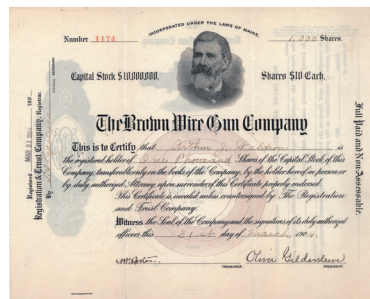 INCORPORATED UNDER THE LAWS OF MAINE.
Number 1174
1,000 Shares.
Capital Stock $10,000,000.
Shares $10 Each.
The Brown Wire Gun Company
This is to Certify that Arthur J. is
the registered holder of One Thousand Shares of the Capital Stock of this
Company, transferable only on the books of the Company, by the holder hereof in person or
by duly authorized Attorney upon surrender of this Certificate properly endorsed.
This Certificate is invalid unless countersigned by The Registration
and Trust Company.
Witness the Seal of the Company and the signatures of its duly authorized
officers, this 21st day of March 1904
TREASURER.
PRESIDENT.
Registered
Registration & Trust Company, Registrar.
By
Full Paid and Non-Assessable.